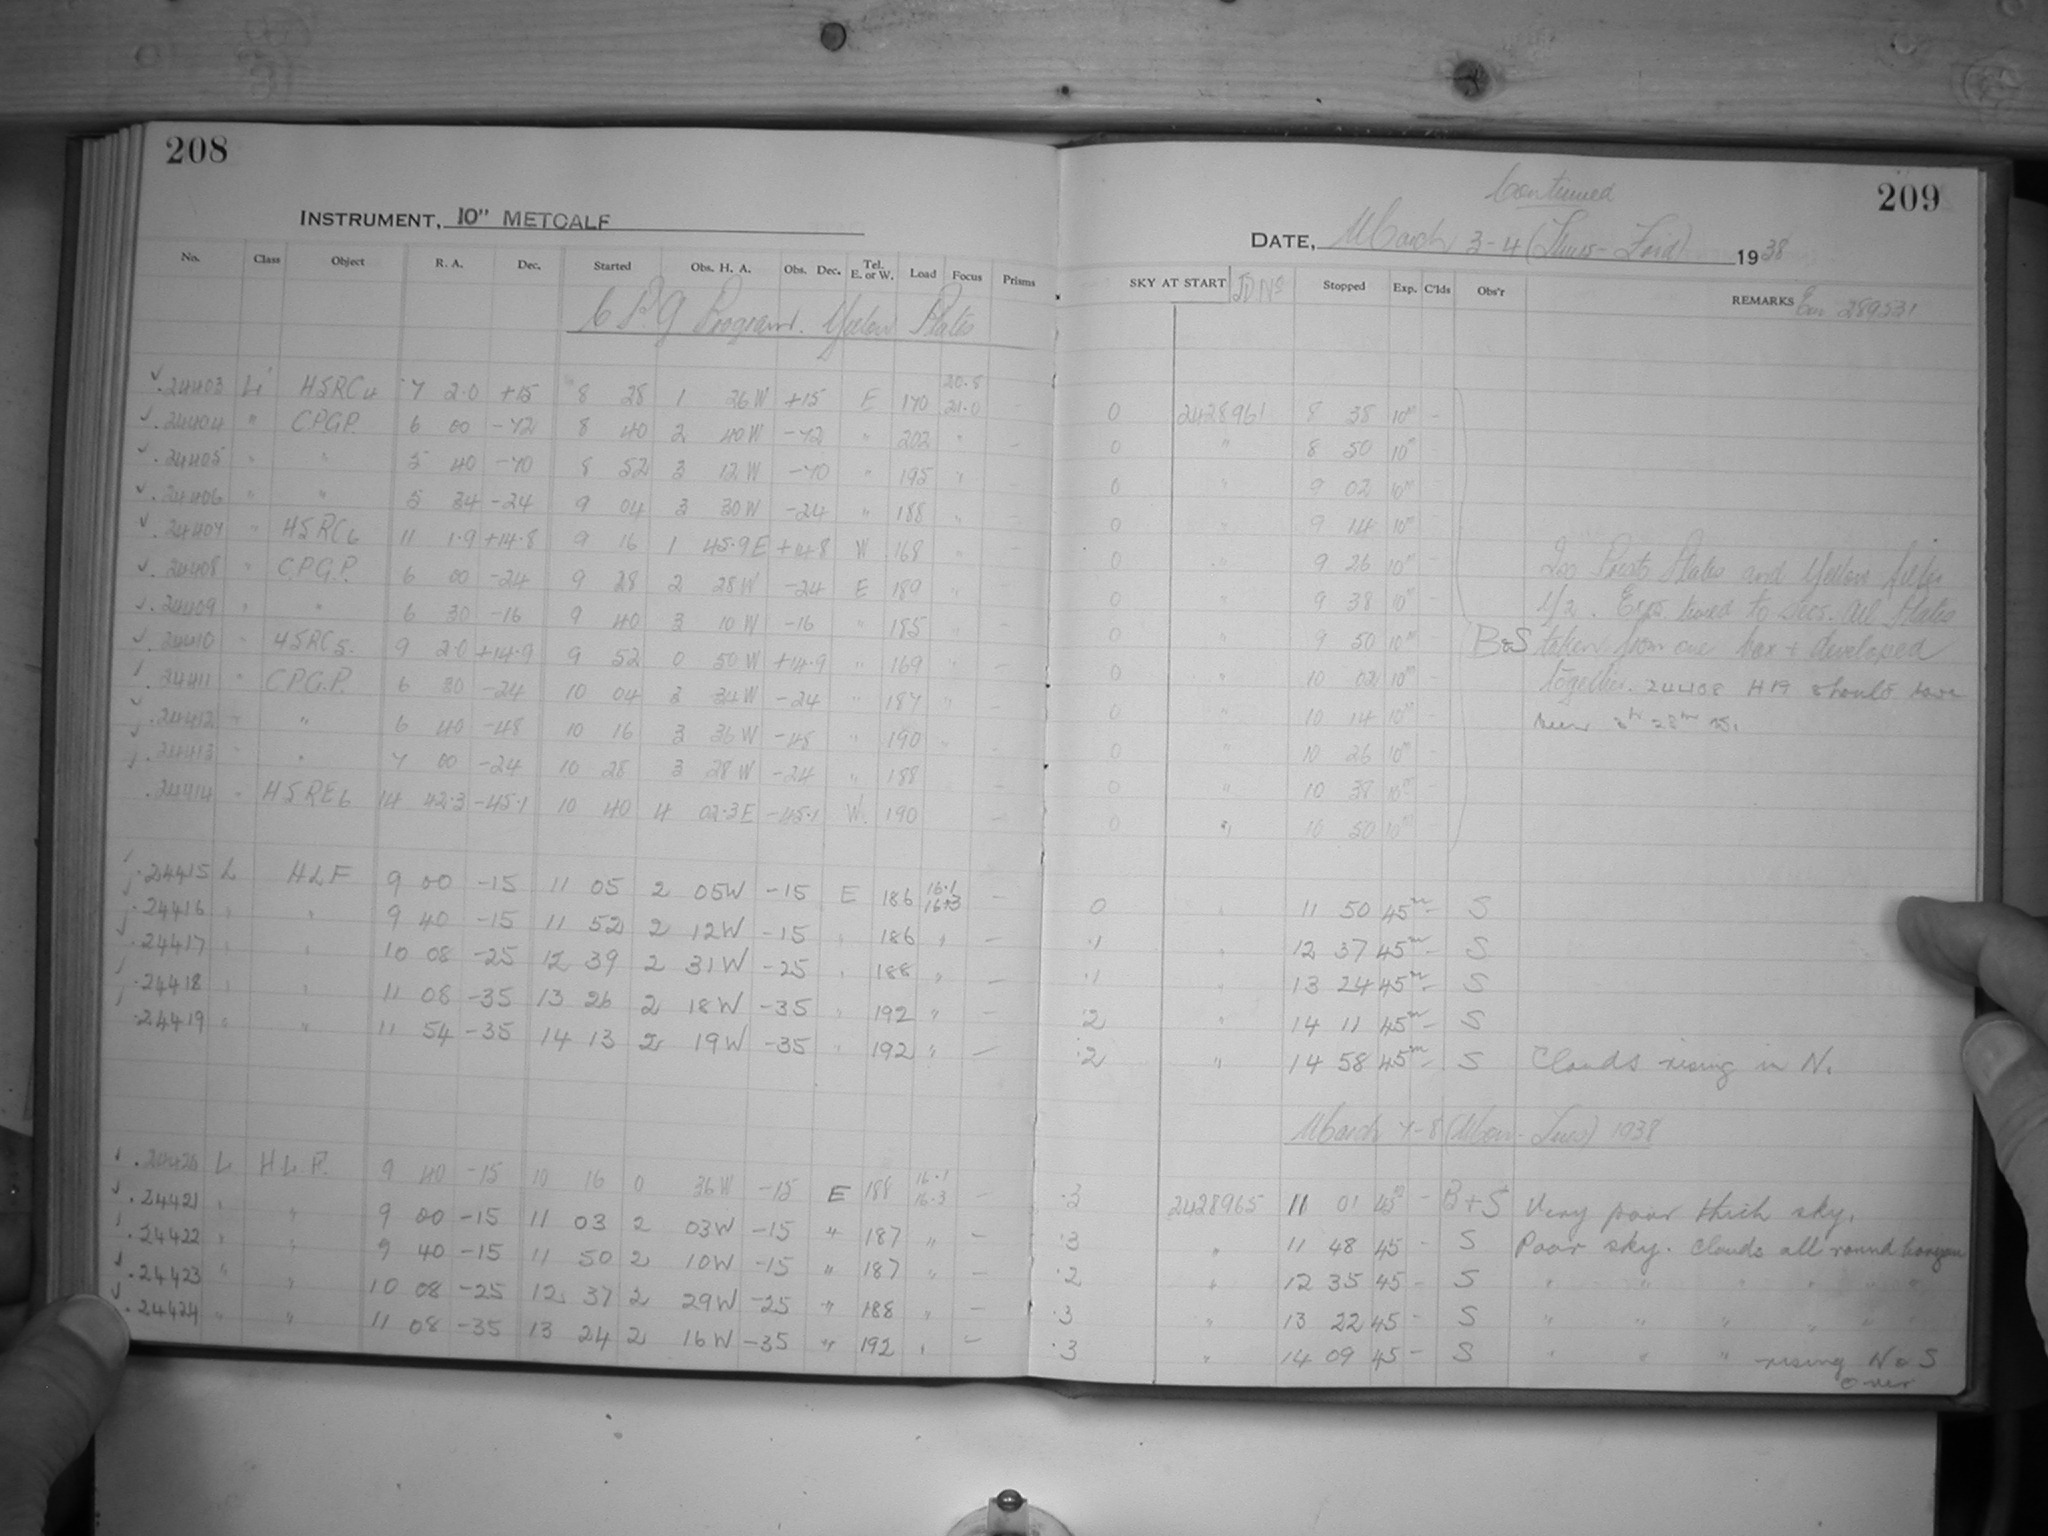 208
INSTRUMENT, 10" METCALF
No. Class Object R. A. Dec. Started Obs. H. A. Obs. Dec. Tel. E. or W. Load Focus Prisms
C P.G Program. Yellow Plates
24403 L HSRC4 7 2.0 +15 8 28 1 26W +15 E 170 20.8 21.0 -
24404 " C.P.G.P. 6 00 -72 8 40 2 40W -72 " 202 " -
24405 " " 5 40 -70 8 52 3 12W -70 " 195 " -
24406 " " 5 34 -24 9 04 3 30W -24 " 188 " -
24407 " HSRC6 11 1.9 +14.8 9 16 1 45.9E +14.8 W 168 " -
24408 " C.P.G.P. 6 00 -24 9 28 2 28W -24 E 189 "
24409 " " 6 30 -16 9 40 3 10W -16 " 185 "
24410 " HSRC5. 9 2.0 +14.9 9 52 0 50W +14.9 " 169 " -
24411 " C.P.G.P. 6 30 -24 10 04 3 34W -24 " 187 " -
24412 " " 6 40 -48 10 16 3 36W -48 " 190 " -
24413 " " 7 00 -24 10 28 3 28W -24 " 188 -
24414 " HSRE6 14 42.3 -45.1 10 40 4 02.3E -45.1 W. 190 -
24415 L HLF 9 00 -15 11 05 2 05W -15 E 186 16.1 16.3 -
24416 " " 9 40 -15 11 52 2 12W -15 " 186 " -
24417 " " 10 08 -25 12 39 2 31W -25 " 188 " -
24418 " " 11 08 -35 13 26 2 18W -35 " 192 " -
24419 " " 11 54 -35 14 13 2 19W -35 " 192 " -
24420 L H L P. 9 40 -15 10 16 0 36W -15 E 188 16.1 16.3 -
24421 " " 9 00 -15 11 03 2 03W -15 " 187 " -
24422 " " 9 40 -15 11 50 2 10W -15 " 187 " -
24423 " " 10 08 -25 12 37 2 29W -25 " 188 " -
24424 " " 11 08 -35 13 24 2 16W -35 " 192 " -
Continued
209
DATE, March 3-4 (Thurs-Frid) 1938
SKY AT START JD No Stopped Exp. C'lds Obs'r REMARKS Em 289531
0 2428961 8 38 10m -
0 " 8 50 10m -
0 " 9 02 10m -
0 " 9 14 10m -
0 " 9 26 10m - Iso Presto Plates and Yellow filter
0 " 9 38 10m - Y2. Exps. timed to secs. All Plates
0 " 9 50 10m - B&S taken from one box + developed
0 " 10 02 10m - together. 24408 HA should have
0 " 10 14 10m - been 3h 28m W.
0 " 10 26 10m -
0 " 10 38 10m -
0 " 10 50 10m -
0 " 11 50 45m - S
.1 " 12 37 45m - S
.1 " 13 24 45m - S
.2 " 14 11 45m - S
.2 " 14 58 45m - S Clouds rising in N.
March 7-8 (Mon-Tues) 1938
.3 2428965 11 01 45m - B+S Very poor thick sky.
.3 " 11 48 45 - S Poor sky. Clouds all round horizon
.2 " 12 35 45 - S " " " " "
.3 " 13 22 45 - S " " " " "
.3 " 14 09 45 - S " " " rising N & S
over